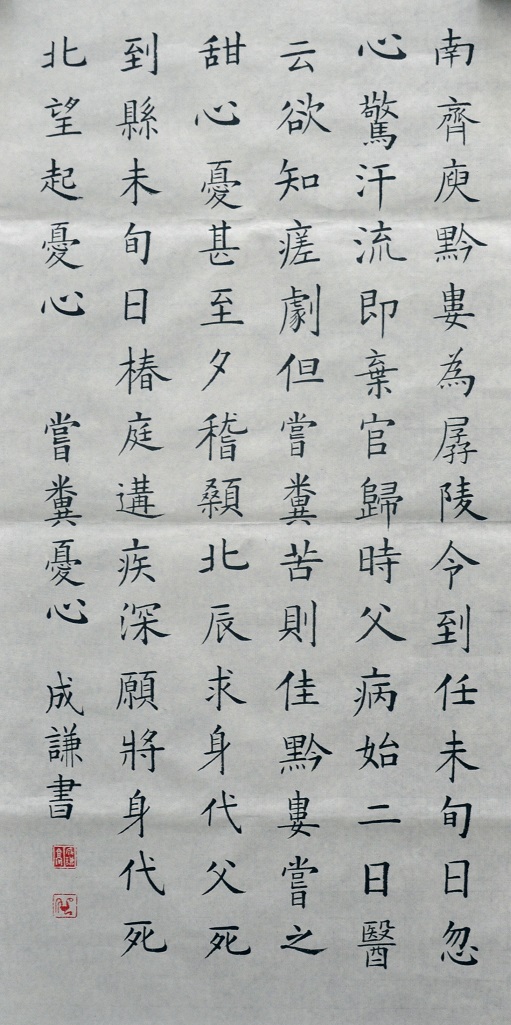 南齊庾黔婁為孱陵令到任未旬日忽
心驚汗流即棄官歸時父病始二日醫
云欲知瘥劇但嘗糞苦則佳黔婁嘗之
甜心憂甚至夕稽顙北辰求身代父死
到縣未旬日椿庭遘疾深願將身代死
北望起憂心 嘗糞憂心 成謙書